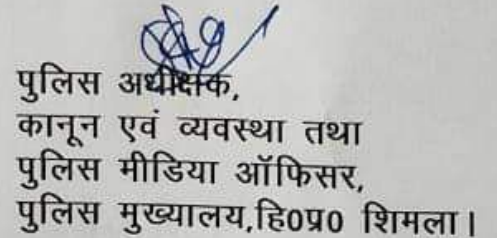 पुलिस अधीक्षक,
कानून एवं व्यवस्था तथा
पुलिस मीडिया ऑफिसर,
पुलिस मुख्यालय,हि0प्र0 शिमला।